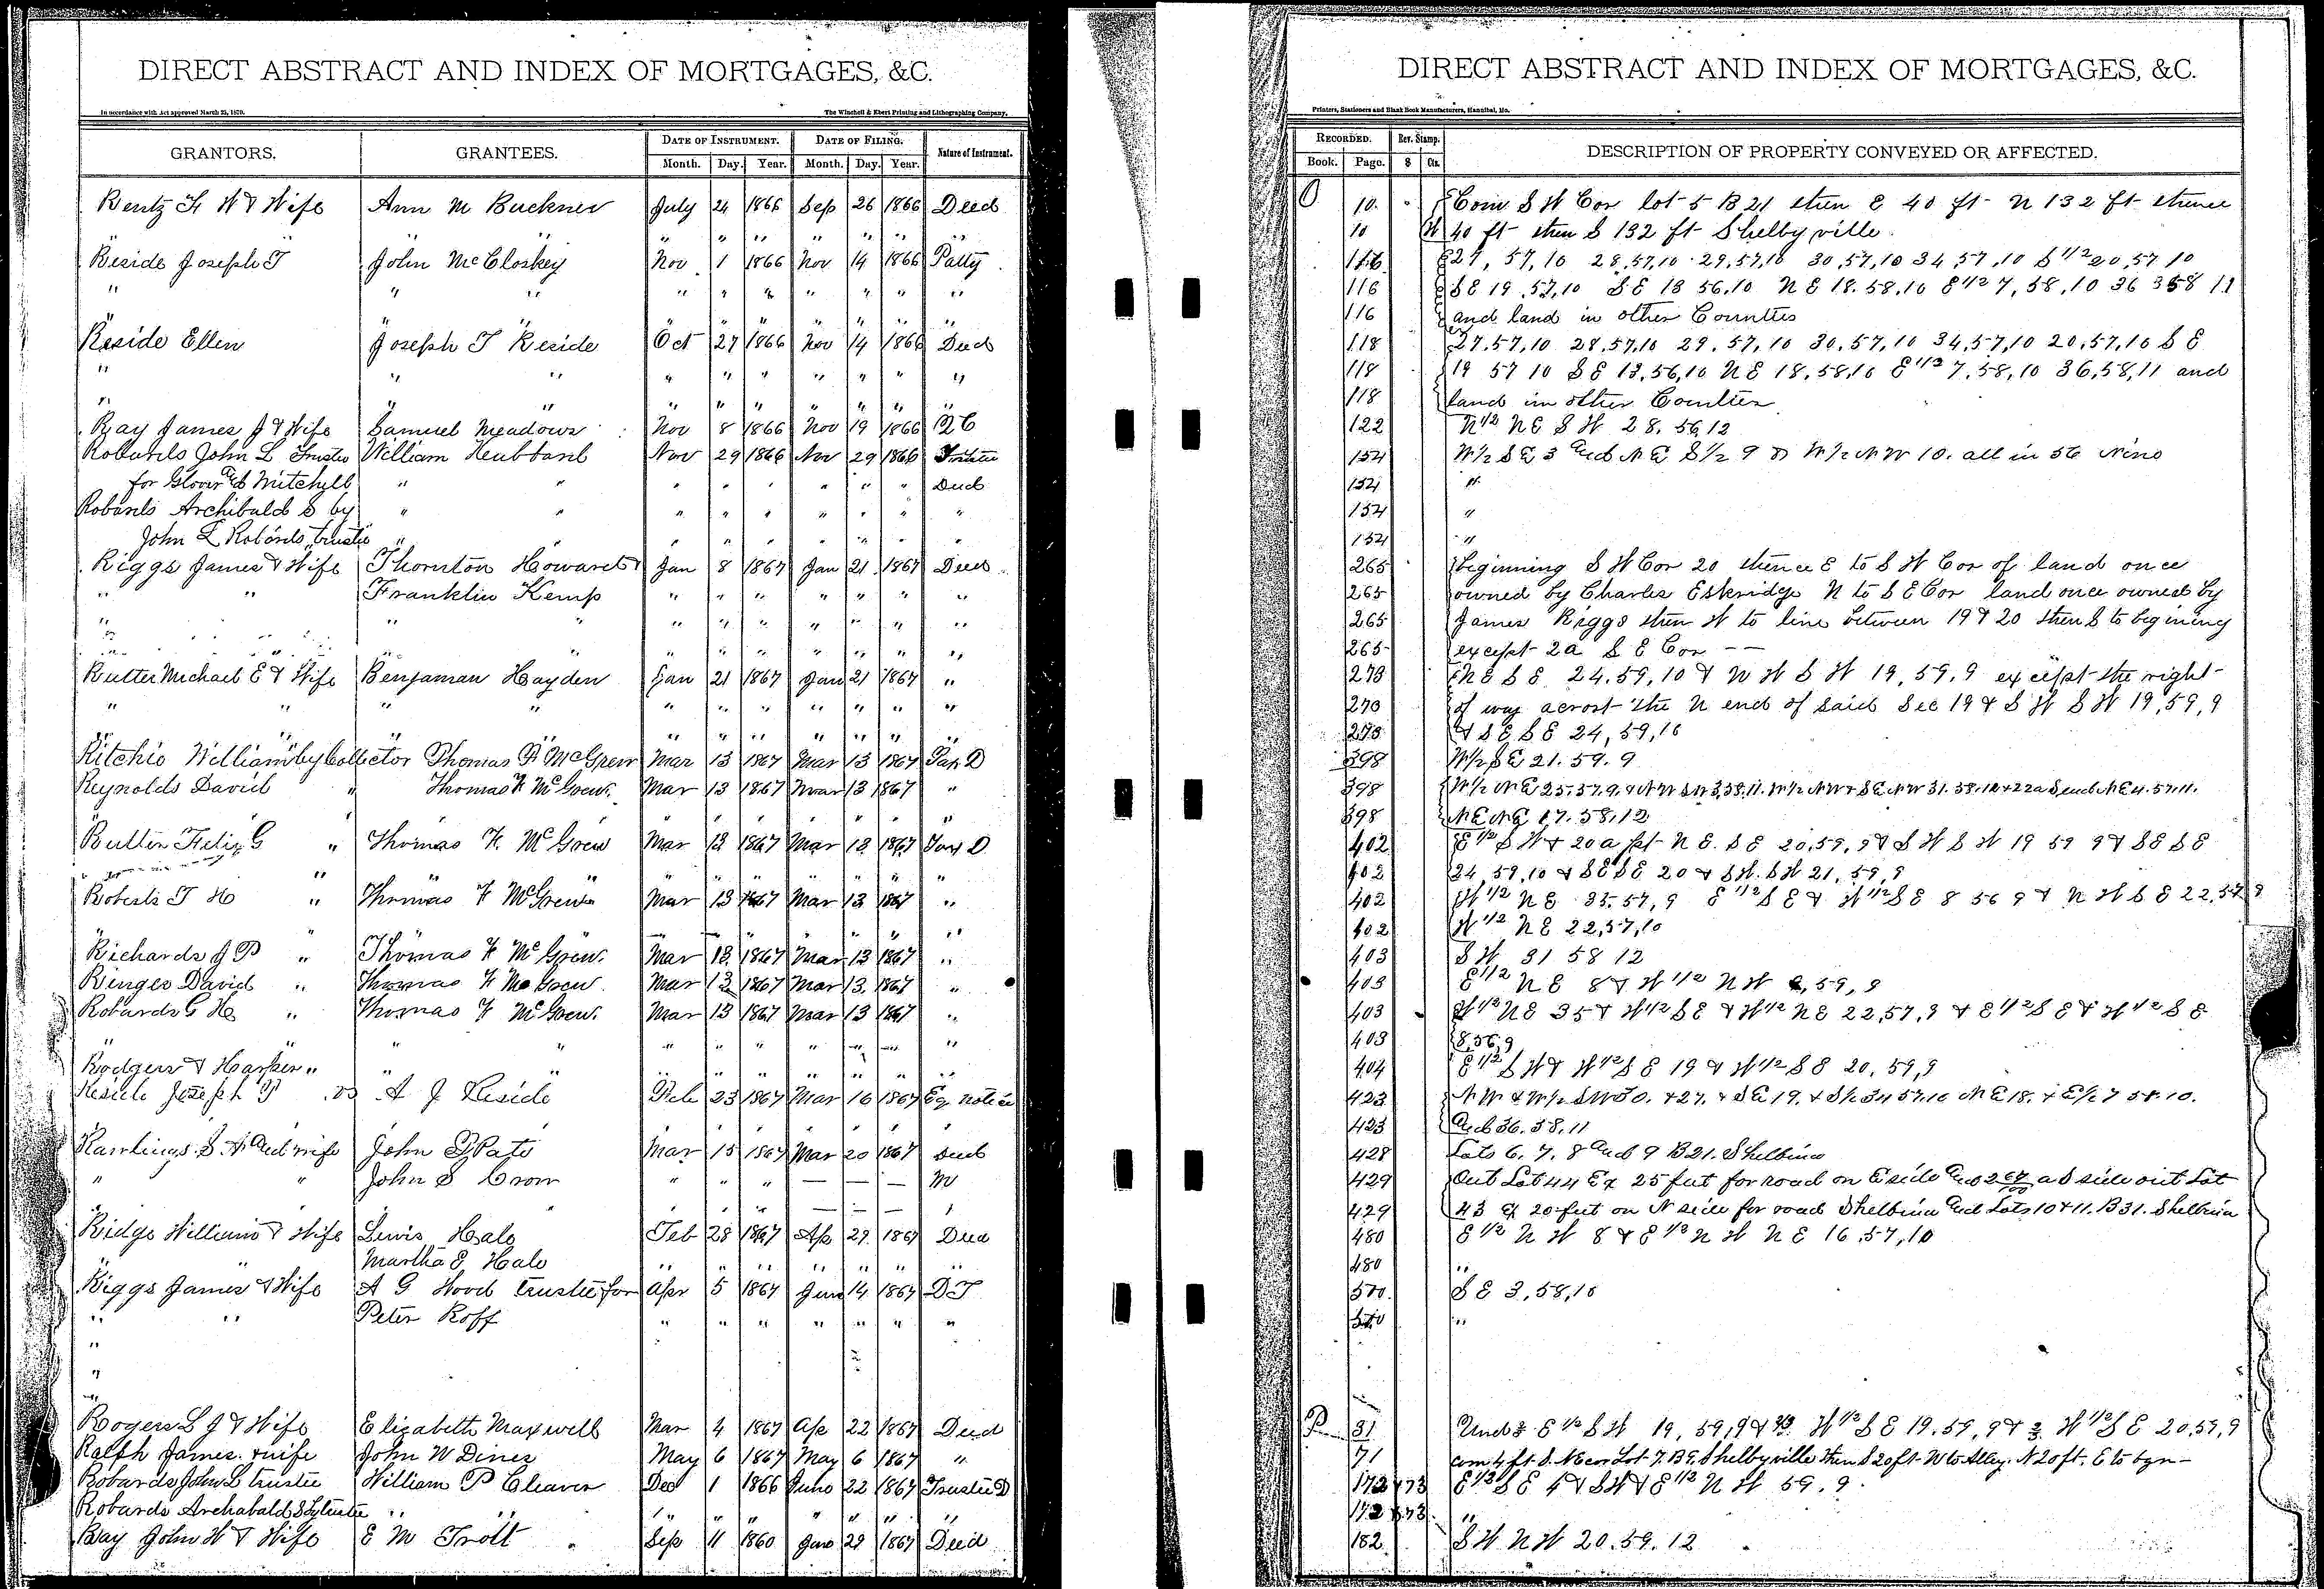 DIRECT ABSTRACT AND INDEX OF MORTGAGES, &C.
In accordance with Act approved March 25, 1870. The Winchell & Ebert Printing and Lithographing Company,
GRANTORS. GRANTEES. DATE OF INSTRUMENT. DATE OF FILING. Nature of Instrument.
Month. Day. Year. Month. Day. Year.
Rentz F W & Wife Ann M Buckner July 24 1866 Sep 26 1866 Deed
" " " " " " " "
Reside Joseph T John McCloskey Nov 1 1866 Nov 14 1866 Patty
" " " " " " " " " "
" " " " " " " "
Reside Ellen Joseph T Reside Oct 27 1866 Nov 14 1866 Deed
" " " " " " " " " "
" " " " " " " " "
Ray James J & Wife Samuel Meadows Nov 8 1866 Nov 19 1866 QC
Robards John L Trustee William Hubbard Nov 29 1866 Nov 29 1866 Trustee
for Glover and Mitchell " " " " " " " " Deed
Robards Archibald S by " " " " " " " " "
John L Robards trustee " " " " " " " " "
Riggs James & Wife Thornton Howard & Jan 8 1867 Jan 21 1867 Deed
" " Franklin Kemp " " " " " " "
" " " " " " " " " "
" " " " " " " " "
Rutter Michael E & Wife Benjaman Hayden Jan 21 1867 Jan 21 1867 "
" " " " " " " " " " "
" " " " " " " "
Ritchie William by Collector Thomas F McGrew Mar 13 1867 Mar 13 1867 Tax D
Reynolds David " Thomas F McGrew. Mar 13 1867 Mar 13 1867 "
" " " " " " "
Rutter Felix G " Thomas F. McGrew Mar 13 1867 Mar 13 1867 Tax D
" " " " " " " "
Roberts T H " Thomas F McGrew Mar 13 1867 Mar 13 1867 "
" " " "
Richards J P " Thomas F McGrew. Mar 13 1867 Mar 13 1867 "
Ringer David " Thomas F McGrew. Mar 13 1867 Mar 13 1867 "
Robards G H " Thomas F McGrew. Mar 13 1867 Mar 13 1867 "
" " " " " " " "
Rodgers & Harper " " " " " " " " " "
Reside Joseph T vs A J Reside Feb 23 1867 Mar 16 1867 Eq notice
" " " " " "
Rawlings S A and wife John G Pats Mar 15 1867 Mar 20 1867 Deed
" " John S Crow " " " — — — M
" " " " — — —
Ridge William & Wife Lewis Hale Feb 28 1867 Ap 29 1867 Deed
" Martha E Hale " " " " " " "
Riggs James & Wife A G Wood trustee for Apr 5 1867 Jun 14 1867 DT
" " Peter Roff " " " " " " "
"
"
Rogers L J & Wife Elizabeth Maxwell Mar 4 1867 Ap 22 1867 Deed
Ralph James & wife John W Dines May 6 1867 May 6 1867 "
Robards John L trustee William P Cleaver Dec 1 1866 June 22 1867 Trustee D
Robards Archabald S by trustee " " " " " " " " "
Ray John W & Wife E M Trott Sep 11 1860 Jun 29 1867 Deed
DIRECT ABSTRACT AND INDEX OF MORTGAGES, &C.
Printers, Stationers and Blank Book Manufacturers, Hannibal, Mo.
RECORDED. Rev. Stamp. DESCRIPTION OF PROPERTY CONVEYED OR AFFECTED.
Book. Page. $ Cts.
O 10. Com S W Cor lot 5 B 21 then E 40 ft N 132 ft thence
10 W 40 ft then S 132 ft Shelbyville.
116 27, 57, 10 28,57,10 29,57,10 30,57,10 34,57,10 S 1/2 20,57 10
116 S E 19,57,10 S E 13 56,10 N E 18.58.10 E 1/2 7,58,10 36 58 11
116 and land in other Counties
118 27.57,10 28,57,10 29,57,10 30,57,10 34,57,10 20,57,10 S E
118 19 57 10 S E 13,56,10 N E 18,58,10 E 1/2 7,58,10 36,58,11 and
118 land in other Counties
122 N 1/2 N E S W 28.56,12
154 W 1/2 S E 3 and N E S 1/2 9 & W 1/2 N W 10. all in 56 Nine
154 "
154 "
154 "
265 beginning S W Cor 20 thence E to S W Cor of land once
265 owned by Charles Eskridge N to S E Cor land once owned by
265 James Riggs then W to line between 19 & 20 then S to begining
265 except 2a S E Cor — —
273 N E S E 24.59,10 & N W S W 19,59,9 except the right
273 of way acrost the N end of said Sec 19 & S W S W 19,59,9
273 & S E S E 24,59,10
398 W 1/2 S E 21.59.9
398 W 1/2 N E 25.57.9. & N W S W 3,58.11. W 1/2 N W & S E N W 31.58.12 & 22a S end N E 4.57.11.
398 N E N E 17.58.12
402 E 1/2 S W & 20a pt N E. S E 20,59,9 & S W S W 19 59 9 & S E S E
402 24,59,10 & S E S E 20 & S W. S W 21,59,9
402 W 1/2 N E 35.57,9 E 1/2 S E & W 1/2 S E 8 56 9 & N W S E 22,57 9
402 W 1/2 N E 22,57,10
403 S W 31 58 12
403 E 1/2 N E 8 & W 1/2 N W 9,59,9
403 W 1/2 N E 35 & W 1/2 S E & W 1/2 N E 22,57,9 & E 1/2 S E & W 1/2 S E
403 8,56,9
404 E 1/2 S W & W 1/2 S E 19 & W 1/2 S E 20,59,9
423 N W & W 1/2 S W 30. & 27. & S E 19. & S 1/2 34 57.10 N E 18. & E 1/2 7 58.10.
423 and 36.58,11
428 Lots 6, 7, 8 and 9 B 21. Shelbina
429 Out Lot 44 Ex 25 feet for road on E side a S side out Lot
429 43 Ex 20 feet on N side for road Shelbina and Lots 10 & 11. B 31. Shelbina
480 E 1/2 N W 8 & E 1/2 N W N E 16,57,10
480 "
570. S E 3,58,10
570 "
P 31 Und 2/3 E 1/2 S W 19,59,9 & 2/3 W 1/2 S E 19.59,9 & 2/3 W 1/2 S E 20,59,9
71 com 4 ft S. N E cor Lot 7. B 9. Shelbyville then S 20 ft. W to Alley. N 20 ft. E to bgn—
172 & 73 E 1/2 S E 4 & S W & E 1/2 N W 59.9.
172 & 73. "
182 S W N W 20.59.12